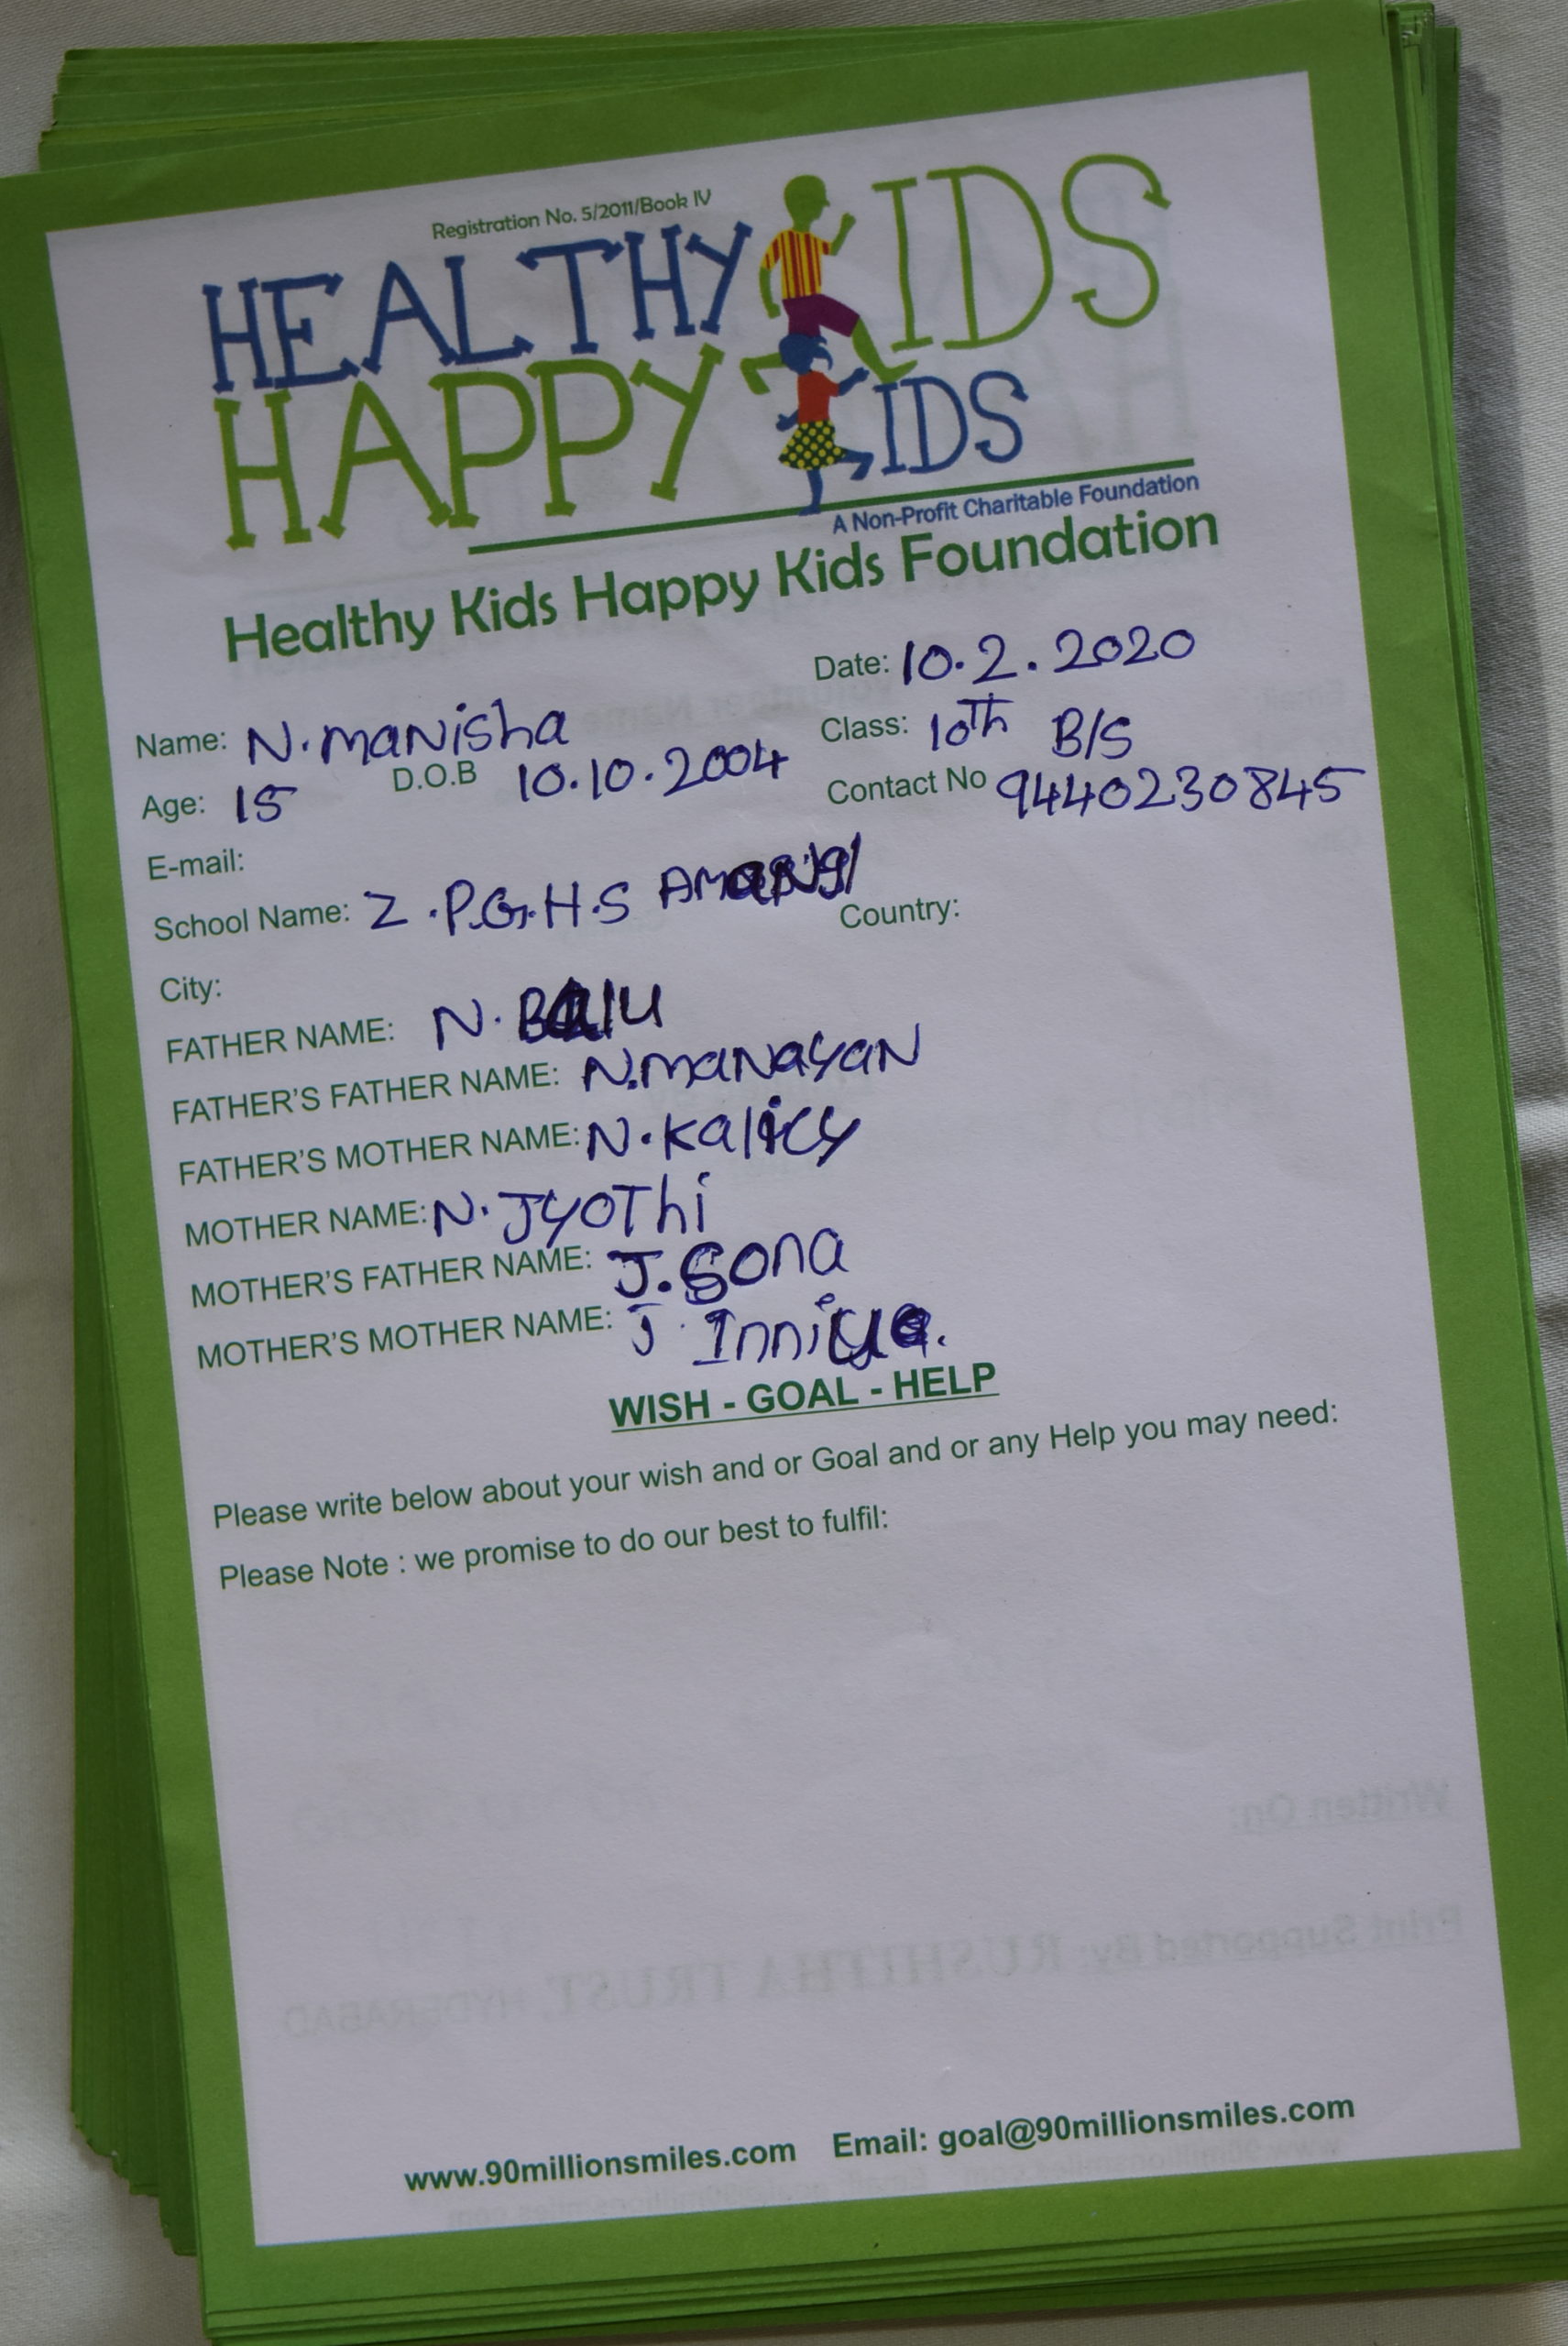 Registration No. 5/2011/Book IV
HEALTHY KIDS
HAPPY KIDS
A Non-Profit Charitable Foundation
Healthy Kids Happy Kids Foundation
Date: 10.2.2020
Name: N.manisha Class: 10Th B/S
Age: 15 D.O.B 10.10.2004 Contact No 9440230845
E-mail:
School Name: Z.P.G.H.S
Country:
City:
FATHER NAME: N. Balu
FATHER'S FATHER NAME: N.manayan
FATHER'S MOTHER NAME: N.
MOTHER NAME: N. JyoThi
MOTHER'S FATHER NAME: J.Sona
MOTHER'S MOTHER NAME: J
WISH - GOAL - HELP
Please write below about your wish and or Goal and or any Help you may need:
Please Note : we promise to do our best to fulfil:
www.90millionsmiles.com Email: goal@90millionsmiles.com